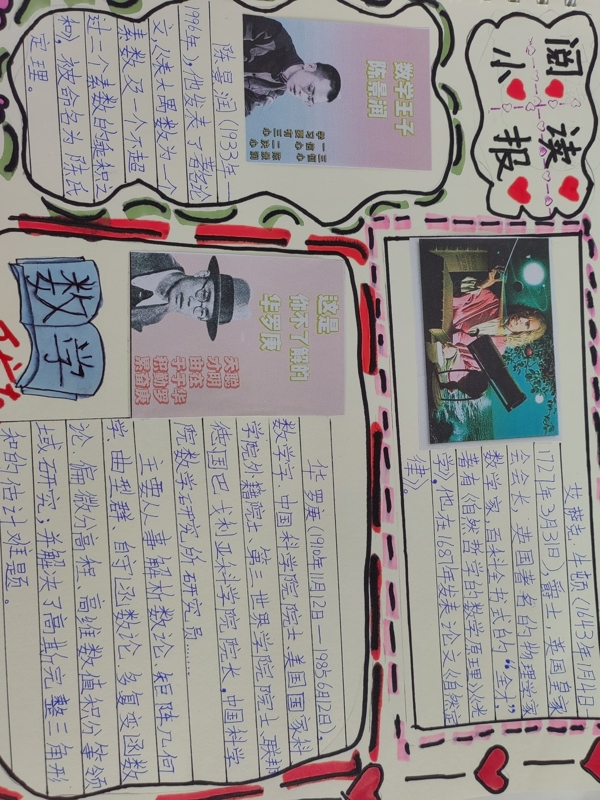 阅读
小报
数学王子
陈景润
学习要有三心
一信心 二决心
三恒心 陈景润
陈景润(1933年一
1996年),他发表了喜论
文《表大偶数为一个
素数及一个不超
过二个素数的乘积之
和》,被命名为陈氏
定理。
艾萨克·牛顿(1643年1月4日
1727年3月31日)爵士,英国皇家
会会长,英国著名的物理学家
数学家,百科全书式的“全才”
著有《自然哲学的数学原理》《光
学》。他在1687年发表论文《自然定
律》。
这是
你不了解的
华罗庚
聪明在于勤奋
天才由于积累
华罗庚
数学
华罗庚(1910年11月12日—1985年6月12日),
数学家,中国科学院院士,美国国家科
学院外籍院士,第三世界学院院士,联邦
德国巴伐利亚科学院院士。中国科学
院数学研究所研究员……
主要从事解析数论、矩阵几何
学、典型群、自守函数论、多复变函数
论、偏微分方程、高维数值积分等领
域研究;并解决了高斯完整三角形
和的估计难题。